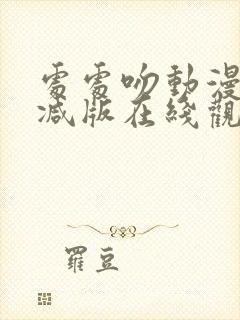 處處吻動漫
減版在綫觀
羅豆